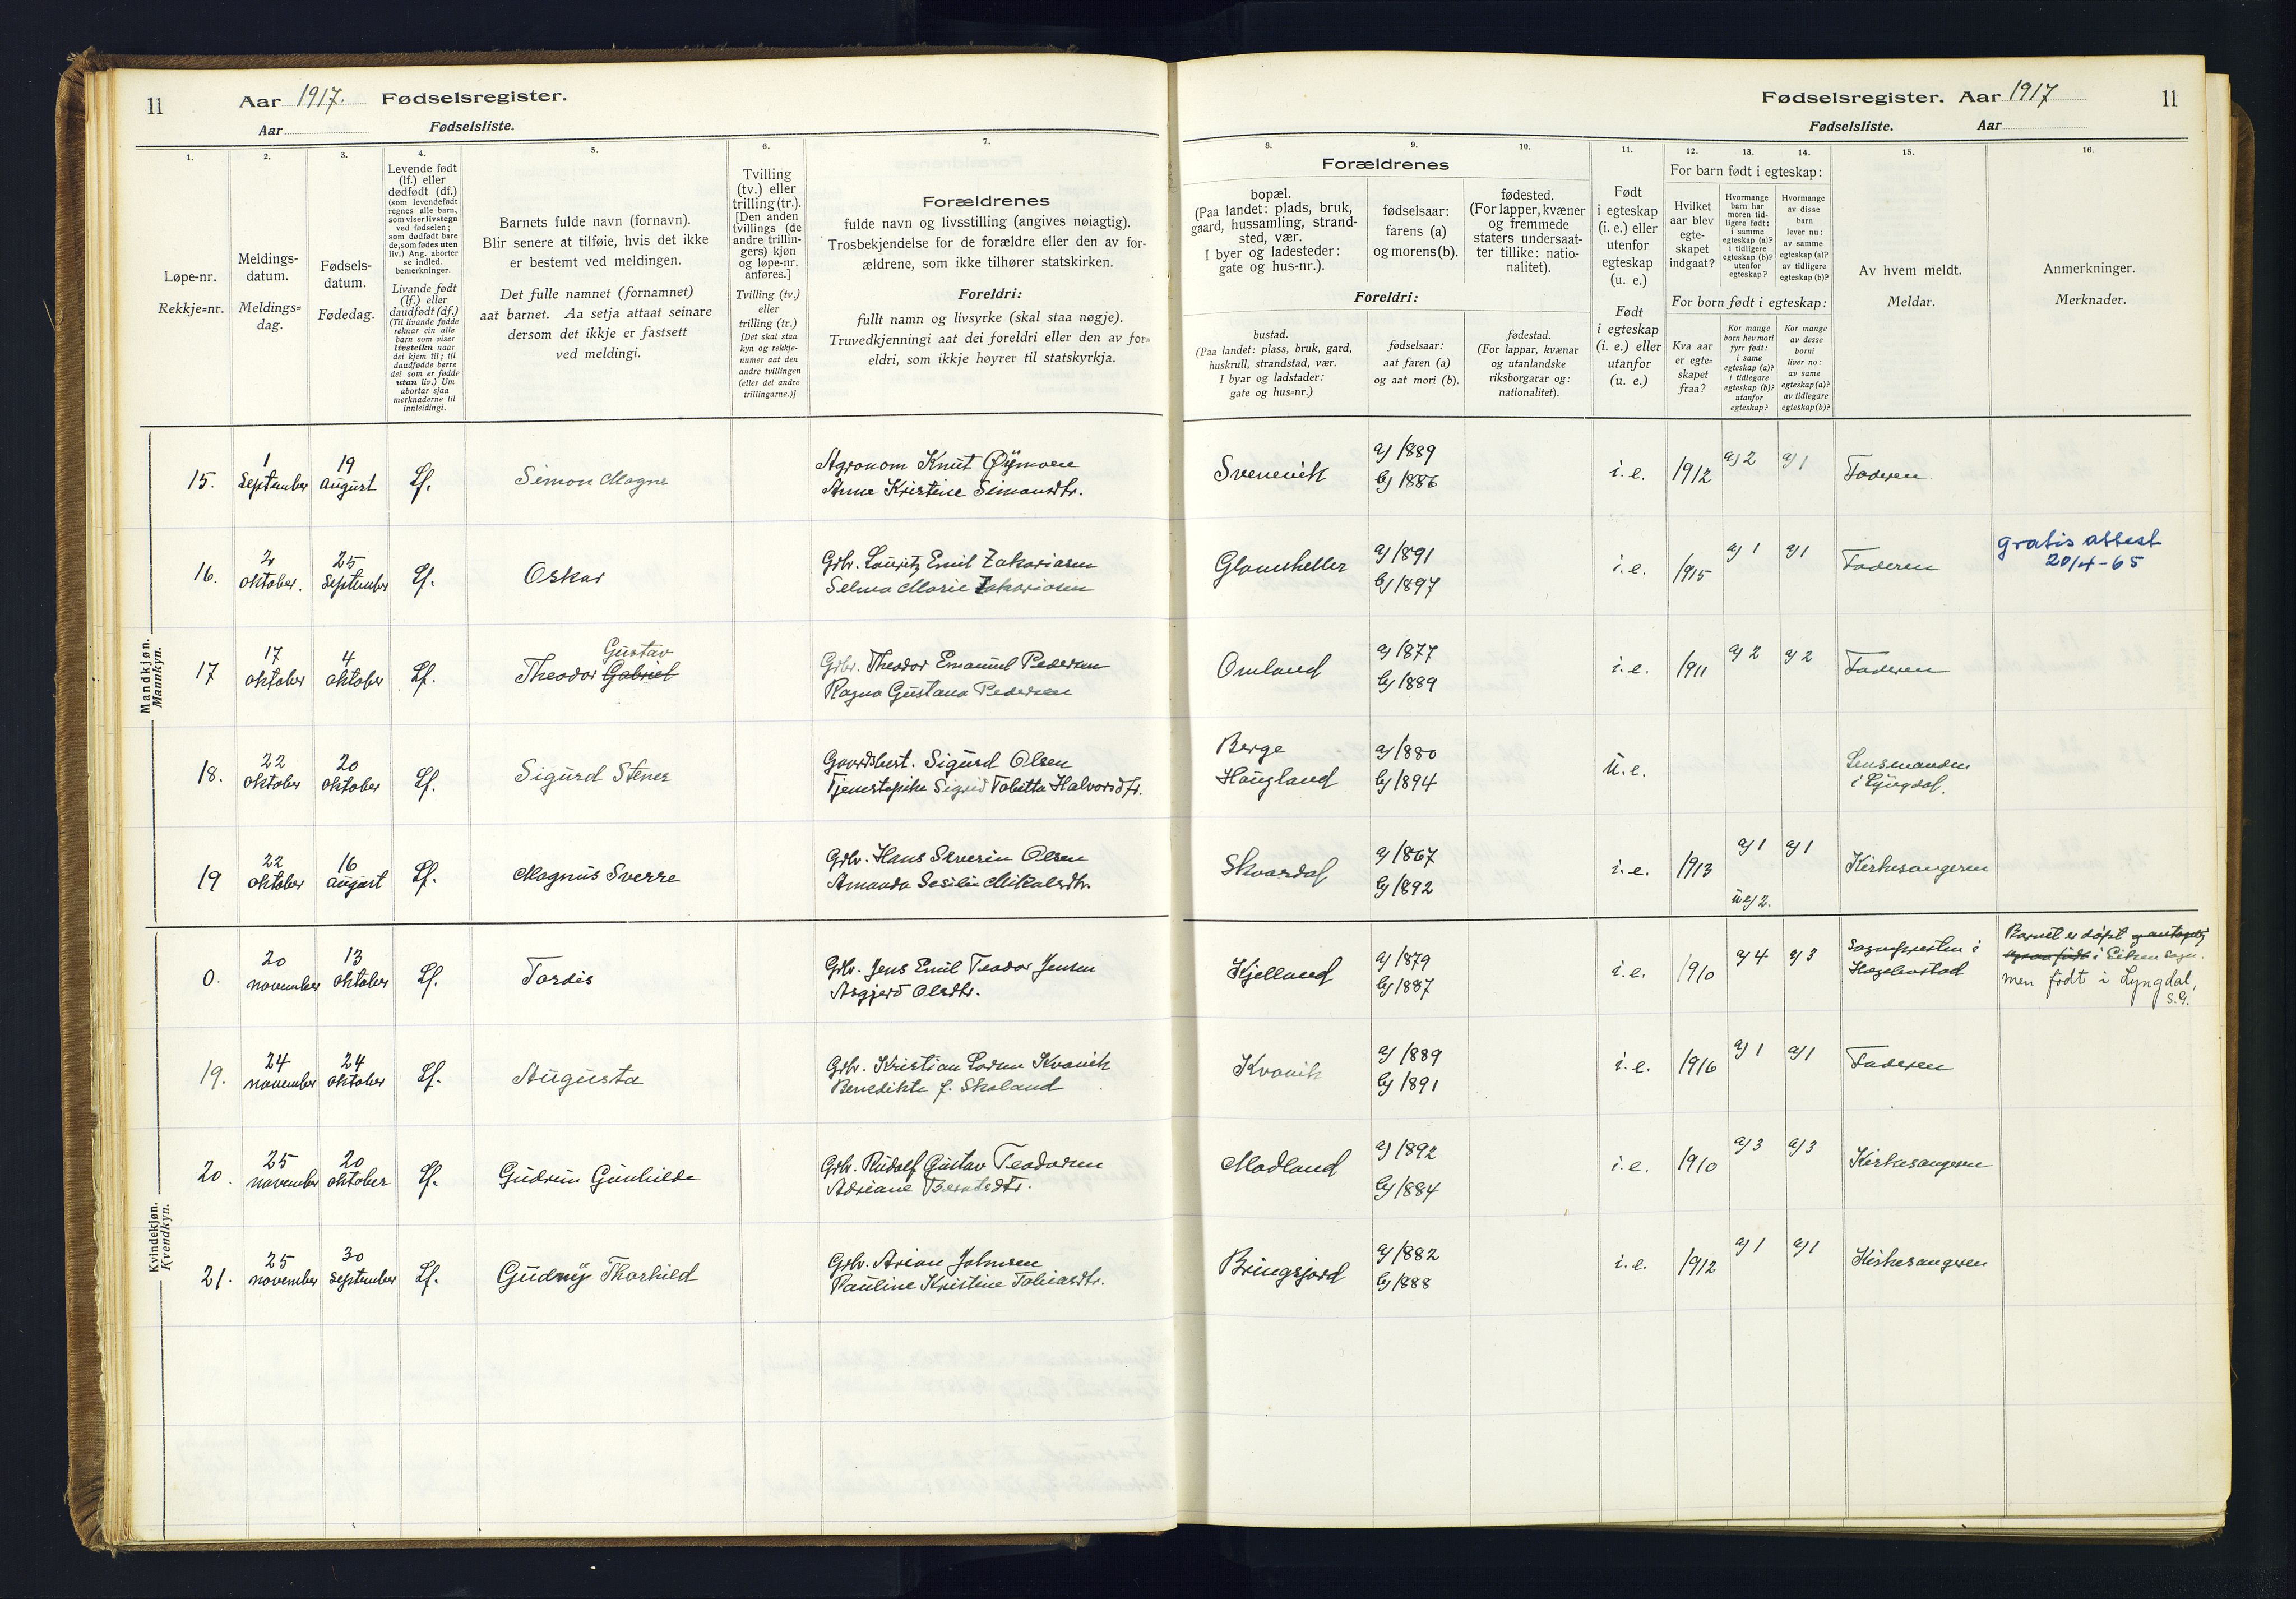 11 Aar 1917. Fødselsregister.
Aar Fødselsliste.
Fødselsregister. Aar 1917 11
Fødselsliste. Aar
1.
Løpe-nr.
Rekkje=nr.
2.
Meldings-
datum.
Meldings=
dag.
3.
Fødsels-
datum.
Fødedag.
4.
Levende født
(lf.) eller
dødfødt (df.)
(som levendefødt
regnes alle barn,
som viser livstegn
ved fødselen;
som dødfødt bare
de, som fødes uten
liv.) Ang. aborter
se indled.
bemerkninger.
Livande født
(lf.) eller
daudfødt (df.)
(Til livande fødde
reknar ein alle
barn som viser
livsteikn naar
dei kjem til; til
daudfødde berre
dei som er fødde
utan liv.) Um
abortar sjaa
merknaderne til
innleidingi.
5.
Barnets fulde navn (fornavn).
Blir senere at tilføie, hvis det ikke
er bestemt ved meldingen.
Det fulle namnet (fornamnet)
aat barnet. Aa setja attaat seinare
dersom det ikkje er fastsett
ved meldingi.
6.
Tvilling
(tv.) eller
trilling (tr.).
[Den anden
tvillings (de
andre trillin-
gers) kjøn
og løpe-nr.
anføres.]
Tvilling (tv.)
eller
trilling (tr.)
[Det skal staa
kyn og rekkje-
numer aat den
andre tvillingen
(eller dei andre
trillingarne.)]
7.
Forældrenes
fulde navn og livsstilling (angives nøiagtig).
Trosbekjendelse for de forældre eller den av for-
ældrene, som ikke tilhører statskirken.
Foreldri:
fullt namn og livsyrke (skal staa nøgje).
Truvedkjenningi aat dei foreldri eller den av for=
eldri, som ikkje høyrer til statskyrkja.
8. 9. 10.
Forældrenes
bopæl.
(Paa landet: plads, bruk,
gaard, hussamling, strand-
sted, vær.
I byer og ladesteder:
gate og hus-nr.).
fødselsaar:
farens (a)
og morens (b).
fødested.
(For lapper, kvæner
og fremmede
staters undersaat-
ter tillike: natio-
nalitet).
Foreldri:
bustad.
(Paa landet: plass, bruk, gard,
huskrull, strandstad, vær.
I byar og ladstader:
gate og hus=nr.)
fødselsaar:
aat faren (a)
og aat mori (b).
fødestad.
(For lappar, kvænar
og utanlandske
riksborgarar og:
nationalitet).
11.
Født
i egteskap
(i. e.) eller
utenfor
egteskap
(u. e.)
Født
i egteskap
(i. e.) eller
utanfor
(u. e.)
12. 13. 14.
For barn født i egteskap:
Hvilket
aar blev
egte-
skapet
indgaat?
Hvormange
barn har
moren tid-
ligere født:
i samme
egteskap (a)?
i tidligere
egteskap (b)?
utenfor
egteskap?
Hvormange
av disse
barn
lever nu:
av samme
egteskap (a)?
av tidligere
egteskap (b)?
For born født i egteskap:
Kva aar
er egte=
skapet
fraa?
Kor mange
born hev mori
fyrr født:
i same
egteskap (a)?
i tidlegare
egteskap (b)?
utanfor
egteskap?
Kor mange
av desse
borni
liver no:
av same
egteskap (a)?
av tidlegare
egteskap (b)?
15.
Av hvem meldt.
Meldar.
16.
Anmerkninger.
Merknader.
Mandkjøn.
Mannkyn.
15. 1 september 19 august Lf. Simon Magne
Agronom Knut Øymoen
Anne Kristine Simonsdtr.
Svenevik a) 1889 b) 1886 i. e. 1912 a) 2 a) 1 Faderen
16. 2 oktober. 25 september Lf. Oskar
Grbr. Lauritz Emil Zakariasen
Selma Marie Zakariasen
Glomsheller a) 1891 b) 1897 i. e. 1915 a) 1 a) 1 Faderen
gratis attest
20/4-65
17 17 oktober 4 oktober Lf. Theodor Gabriel Gustav
Grbr. Theodor Emanuel Pedersen
Ragna Gustava Pedersen
Omland a) 1877 b) 1889 i. e. 1911 a) 2 a) 2 Faderen
18. 22 oktober 20 oktober Lf. Sigurd Stener
Gaardsbest. Sigurd Olsen
Tjenestepike Sigrid Tabitta Halvorsdtr.
Berge
Haugland a) 1880 b) 1894 u. e.
Lensmanden
i Lyngdal.
19 22 oktober 16 august Lf. Magnus Sverre
Grbr. Hans Severin Olsen
Amanda Sesilie Mikalsdtr.
Skoardal a) 1867 b) 1892 i. e. 1913 a) 1 a) 1 Kirkesangeren
u e) 2.
Kvindekjøn.
Kvendkyn.
0. 20 november 13 oktober Lf. Tordis
Grbr. Jens Emil Teodor Jensen
Asgjerd Olsdtr.
Kjelland a) 1879 b) 1887 i. e. 1910 a) 4 a) 3
Sognepresten i
Hægebostad
Barnet er døpt og antagelig
ogsaa født i Eiken sogn.
men født i Lyngdal,
S.G.
19. 24 november 24 oktober Lf. Augusta
Grbr. Kristian Loren Kvavik
Benedikte f. Skoland
Kvavik a) 1889 b) 1891 i. e. 1916 a) 1 a) 1 Faderen
20. 25 november 20 oktober Lf. Gudrun Gunhilde
Grbr. Rudolf Gustav Teodorsen
Adriane Berntsdtr.
Modland a) 1892 b) 1884 i. e. 1910 a) 3 a) 3 Kirkesangeren
21. 25 november 30 september Lf. Gudny Thorhild
Grbr. Arian Johnsen
Pauline Kristine Tobiasdtr.
Bringsjord a) 1882 b) 1888 i. e. 1912 a) 1 a) 1 Kirkesangeren